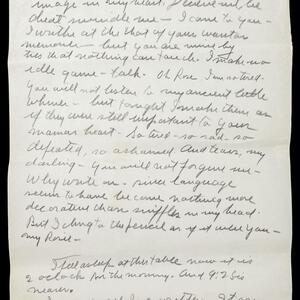 image in my heart. Deceive me,
cheat swindle me – I come to you –
I writhe at the        of your wanton
memories – but you are mine by
ties that nothing can touch. I make no
idle game – talk. Oh Rose I'm so tired.
You will not listen to my ancient little
whines – but tonight I make them as
if they were still important to your
        heart. So tired – so sad, so
defeated, so ashamed. And tears, my
darling – you will not forgive me –
Why write on – since language
seems to have become nothing more
decorative than sniffles in my head.
But I cling to the pencil as if it were you –
my Rose –
I fell asleep at this table now it is
2 o'clock in the morning. And 9:25 is
nearer.